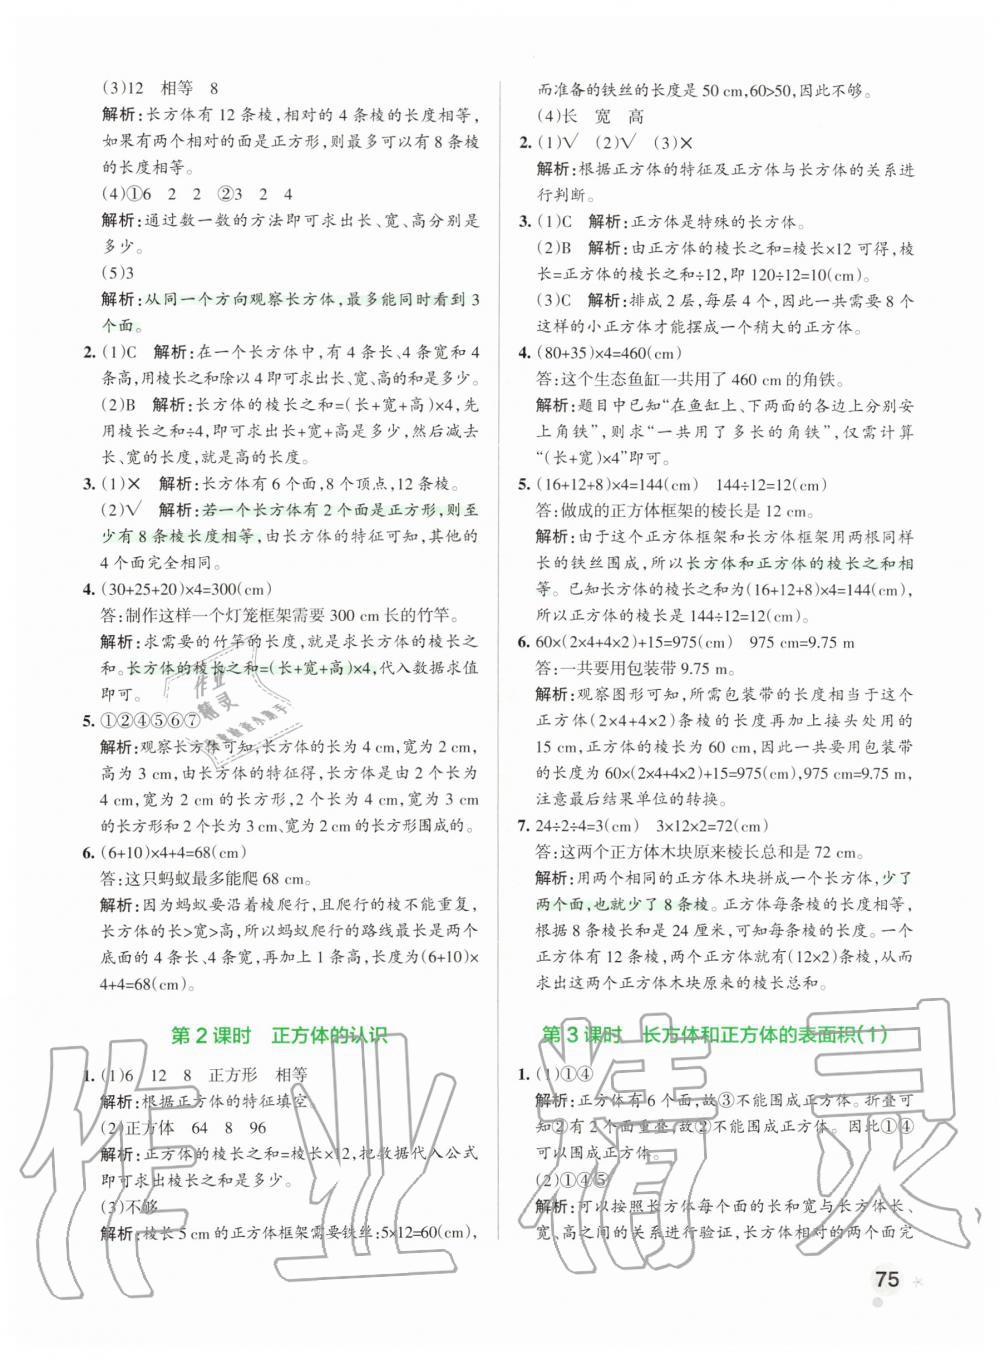 (3)12　相等　8
解析:长方体有 12 条棱,相对的 4 条棱的长度相等,
如果有两个相对的面是正方形,则最多可以有 8 条棱
的长度相等。
(4)①6　2　2　②3　2　4
解析:通过数一数的方法即可求出长、宽、高分别是
多少。
(5)3
解析:从同一个方向观察长方体,最多能同时看到 3
个面。
2. (1)C　解析:在一个长方体中,有 4 条长、4 条宽和 4
条高,用棱长之和除以 4 即可求出长、宽、高的和是多少。
(2)B　解析:长方体的棱长之和=(长+宽+高)×4,先
用棱长之和÷4,即可求出长+宽+高是多少,然后减去
长、宽的长度,就是高的长度。
3. (1)×　解析:长方体有 6 个面,8 个顶点,12 条棱。
(2)√　解析:若一个长方体有 2 个面是正方形,则至
少有 8 条棱长度相等,由长方体的特征可知,其他的
4 个面完全相同。
4. (30+25+20)×4=300(cm)
答:制作这样一个灯笼框架需要 300 cm 长的竹竿。
解析:求需要的竹竿的长度,就是求长方体的棱长之
和。长方体的棱长之和=(长+宽+高)×4,代入数据求值
即可。
5. ①②④⑤⑥⑦
解析:观察长方体可知,长方体的长为 4 cm,宽为 2 cm,
高为 3 cm,由长方体的特征得,长方体是由 2 个长为
4 cm,宽为 2 cm 的长方形,2 个长为 4 cm、宽为 3 cm
的长方形和 2 个长为 3 cm、宽为 2 cm 的长方形围成的。
6. (6+10)×4+4=68(cm)
答:这只蚂蚁最多能爬 68 cm。
解析:因为蚂蚁要沿着棱爬行,且爬行的棱不能重复,
长方体的长>宽>高,所以蚂蚁爬行的路线最长是两个
底面的 4 条长、4 条宽,再加上 1 条高,长度为(6+10)×
4+4=68(cm)。
第 2 课时　正方体的认识
1. (1)6　12　8　正方形　相等
解析:根据正方体的特征填空。
(2)正方体　64　8　96
解析:正方体的棱长之和=棱长×12,把数据代入公式
即可求出棱长之和是多少。
(3)不够
解析:棱长 5 cm 的正方体框架需要铁丝:5×12=60(cm),
而准备的铁丝的长度是 50 cm,60>50,因此不够。
(4)长　宽　高
2. (1)√　(2)√　(3)×
解析:根据正方体的特征及正方体与长方体的关系进
行判断。
3. (1)C　解析:正方体是特殊的长方体。
(2)B　解析:由正方体的棱长之和=棱长×12 可得,棱
长=正方体的棱长之和÷12,即 120÷12=10(cm)。
(3)C　解析:排成 2 层,每层 4 个,因此一共需要 8 个
这样的小正方体才能摆成一个稍大的正方体。
4. (80+35)×4=460(cm)
答:这个生态鱼缸一共用了 460 cm 的角铁。
解析:题目中已知“在鱼缸上、下两面的各边上分别安
上角铁”,则求“一共用了多长的角铁”,仅需计算
“(长+宽)×4”即可。
5. (16+12+8)×4=144(cm)　144÷12=12(cm)
答:做成的正方体框架的棱长是 12 cm。
解析:由于这个正方体框架和长方体框架用两根同样
长的铁丝围成,所以长方体和正方体的棱长之和相
等。已知长方体的棱长之和为(16+12+8)×4=144(cm),
所以正方体的棱长是 144÷12=12(cm)。
6. 60×(2×4+4×2)+15=975(cm)　975 cm=9.75 m
答:一共要用包装带 9.75 m。
解析:观察图形可知,所需包装带的长度相当于这个
正方体(2×4+4×2)条棱的长度再加上接头处用的
15 cm,正方体的棱长为 60 cm,因此一共要用包装带
的长度为 60×(2×4+4×2)+15=975(cm),975 cm=9.75 m,
注意最后结果单位的转换。
7. 24÷2÷4=3(cm)　3×12×2=72(cm)
答:这两个正方体木块原来棱长总和是 72 cm。
解析:用两个相同的正方体木块拼成一个长方体,少了
两个面,也就少了 8 条棱。正方体每条棱的长度相等,
根据 8 条棱长和是 24 厘米,可知每条棱的长度。一个
正方体有 12 条棱,两个正方体就有(12×2)条棱,从而
求出这两个正方体木块原来的棱长总和。
第 3 课时　长方体和正方体的表面积(1)
1. (1)①④
解析:正方体有 6 个面,故③不能围成正方体。折叠可
知②有 2 个面重叠,故②不能围成正方体。因此①④
可以围成正方体。
(2)①④⑤
解析:可以按照长方体每个面的长和宽与长方体长、
宽、高之间的关系进行验证,长方体相对的两个面完
75
作业精灵
作业
精灵